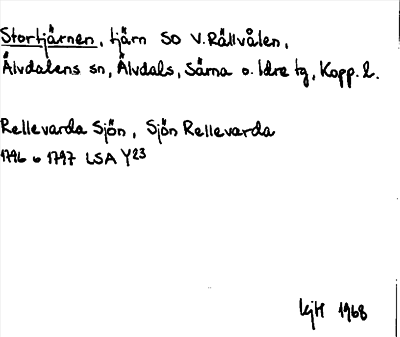 Stortjärnen, tjärn SO V. Rällvålen,
Älvdalens sn, Älvdals, Särna o. Idre tg, Kopp. l.
Rellevarda Sjön, Sjön Rellevarda
1796 o 1797 LSA Y23
1968